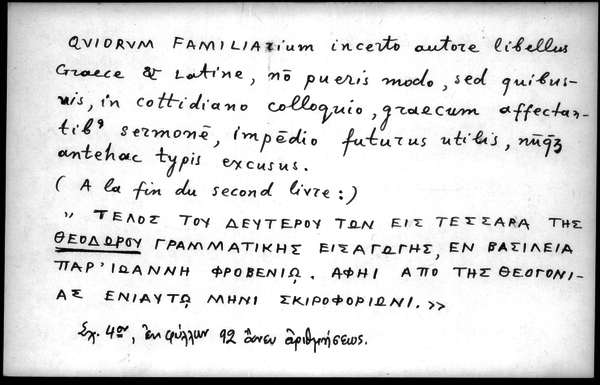 QVIORVM FAMILIARium incerto autore libellus
Graece & Latine, nō pueris modo, sed quibus-
vis, in cottidiano colloquio, graecum affectan-
tibꝰ sermonē, impēdio futurus utilis, nūq̃ȝ
antehac typis excusus.
( A la fin du second livre :)
" ΤΕΛΟΣ ΤΟΥ ΔΕΥΤΕΡΟΥ ΤΩΝ ΕΙΣ ΤΕΣΣΑΡΑ ΤΗΣ
ΘΕΟΔΩΡΟΥ ΓΡΑΜΜΑΤΙΚΗΣ ΕΙΣΑΓΩΓΗΣ, ΕΝ ΒΑΣΙΛΕΙΑ
ΠΑΡ' ΙΩΑΝΝΗ ΦΡΟΒΕΝΙῼ. ΑΦΗΙ ΑΠΟ ΤΗΣ ΘΕΟΓΟΝΙ-
ΑΣ ΕΝΙΑΥΤῼ ΜΗΝΙ ΣΚΙΡΟΦΟΡΙΩΝΙ. >>
Σχ. 4ον, ἐκ φύλλων 92 ἄνευ ἀριθμήσεως.